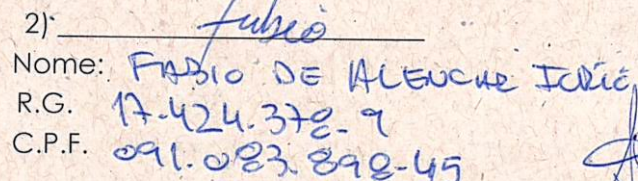 2) Fubio
Nome: FABIO DE ALENCAR
R.G. 17.424.378-9
C.P.F. 091.083.898-45